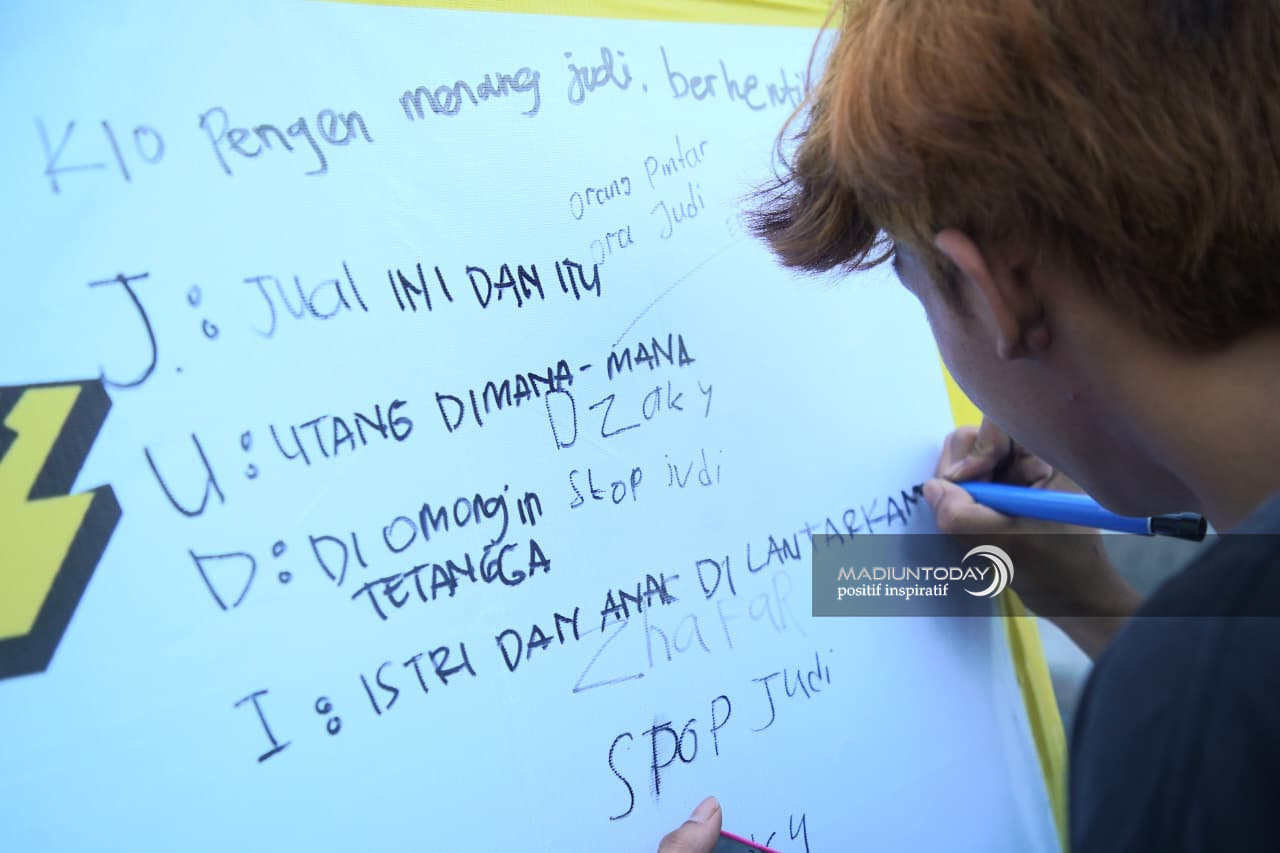 Klo Pengen menang judi, berhenti
orang Pintar
ora Judi
J : JUal INI DAN ITU
U : UTANG DIMANA-MANA
Dzaky
D : DI OMOngin
TETANGGA
Stop judi
I : ISTRI DAN ANAK DI LANTARKAN
ZhafaR
SPOP Judi
MADIUNTODAY
positif inspiratif